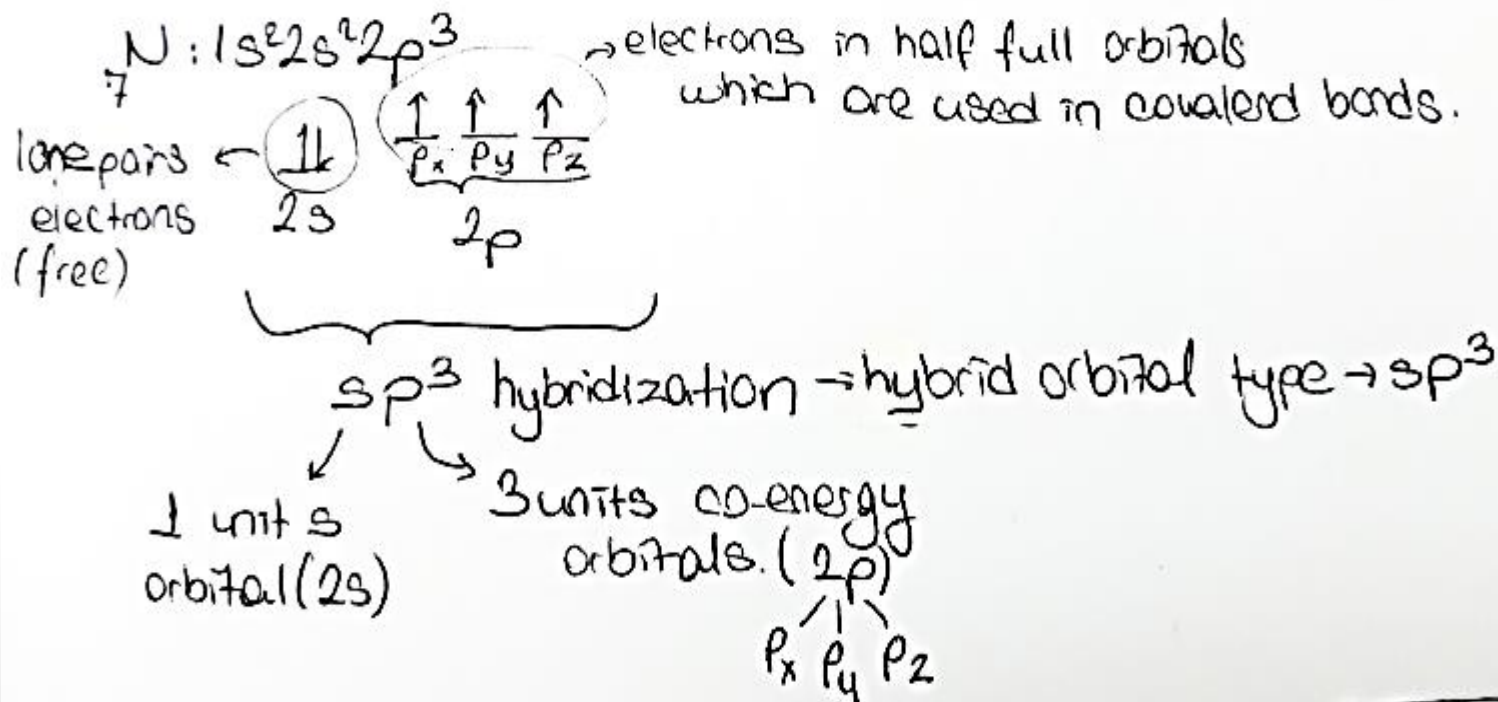 ₇N: 1s²2s²2p³
→ electrons in half full orbitals
which are used in covalend bonds.
lonepairs ← 1l ↑ ↑ ↑
electrons 2s Px Py Pz
(free) 2p
sp³ hybridization → hybrid orbital type → sp³
1 unit s
orbital (2s)
3 units co-energy
orbitals. (2p)
Px Py Pz